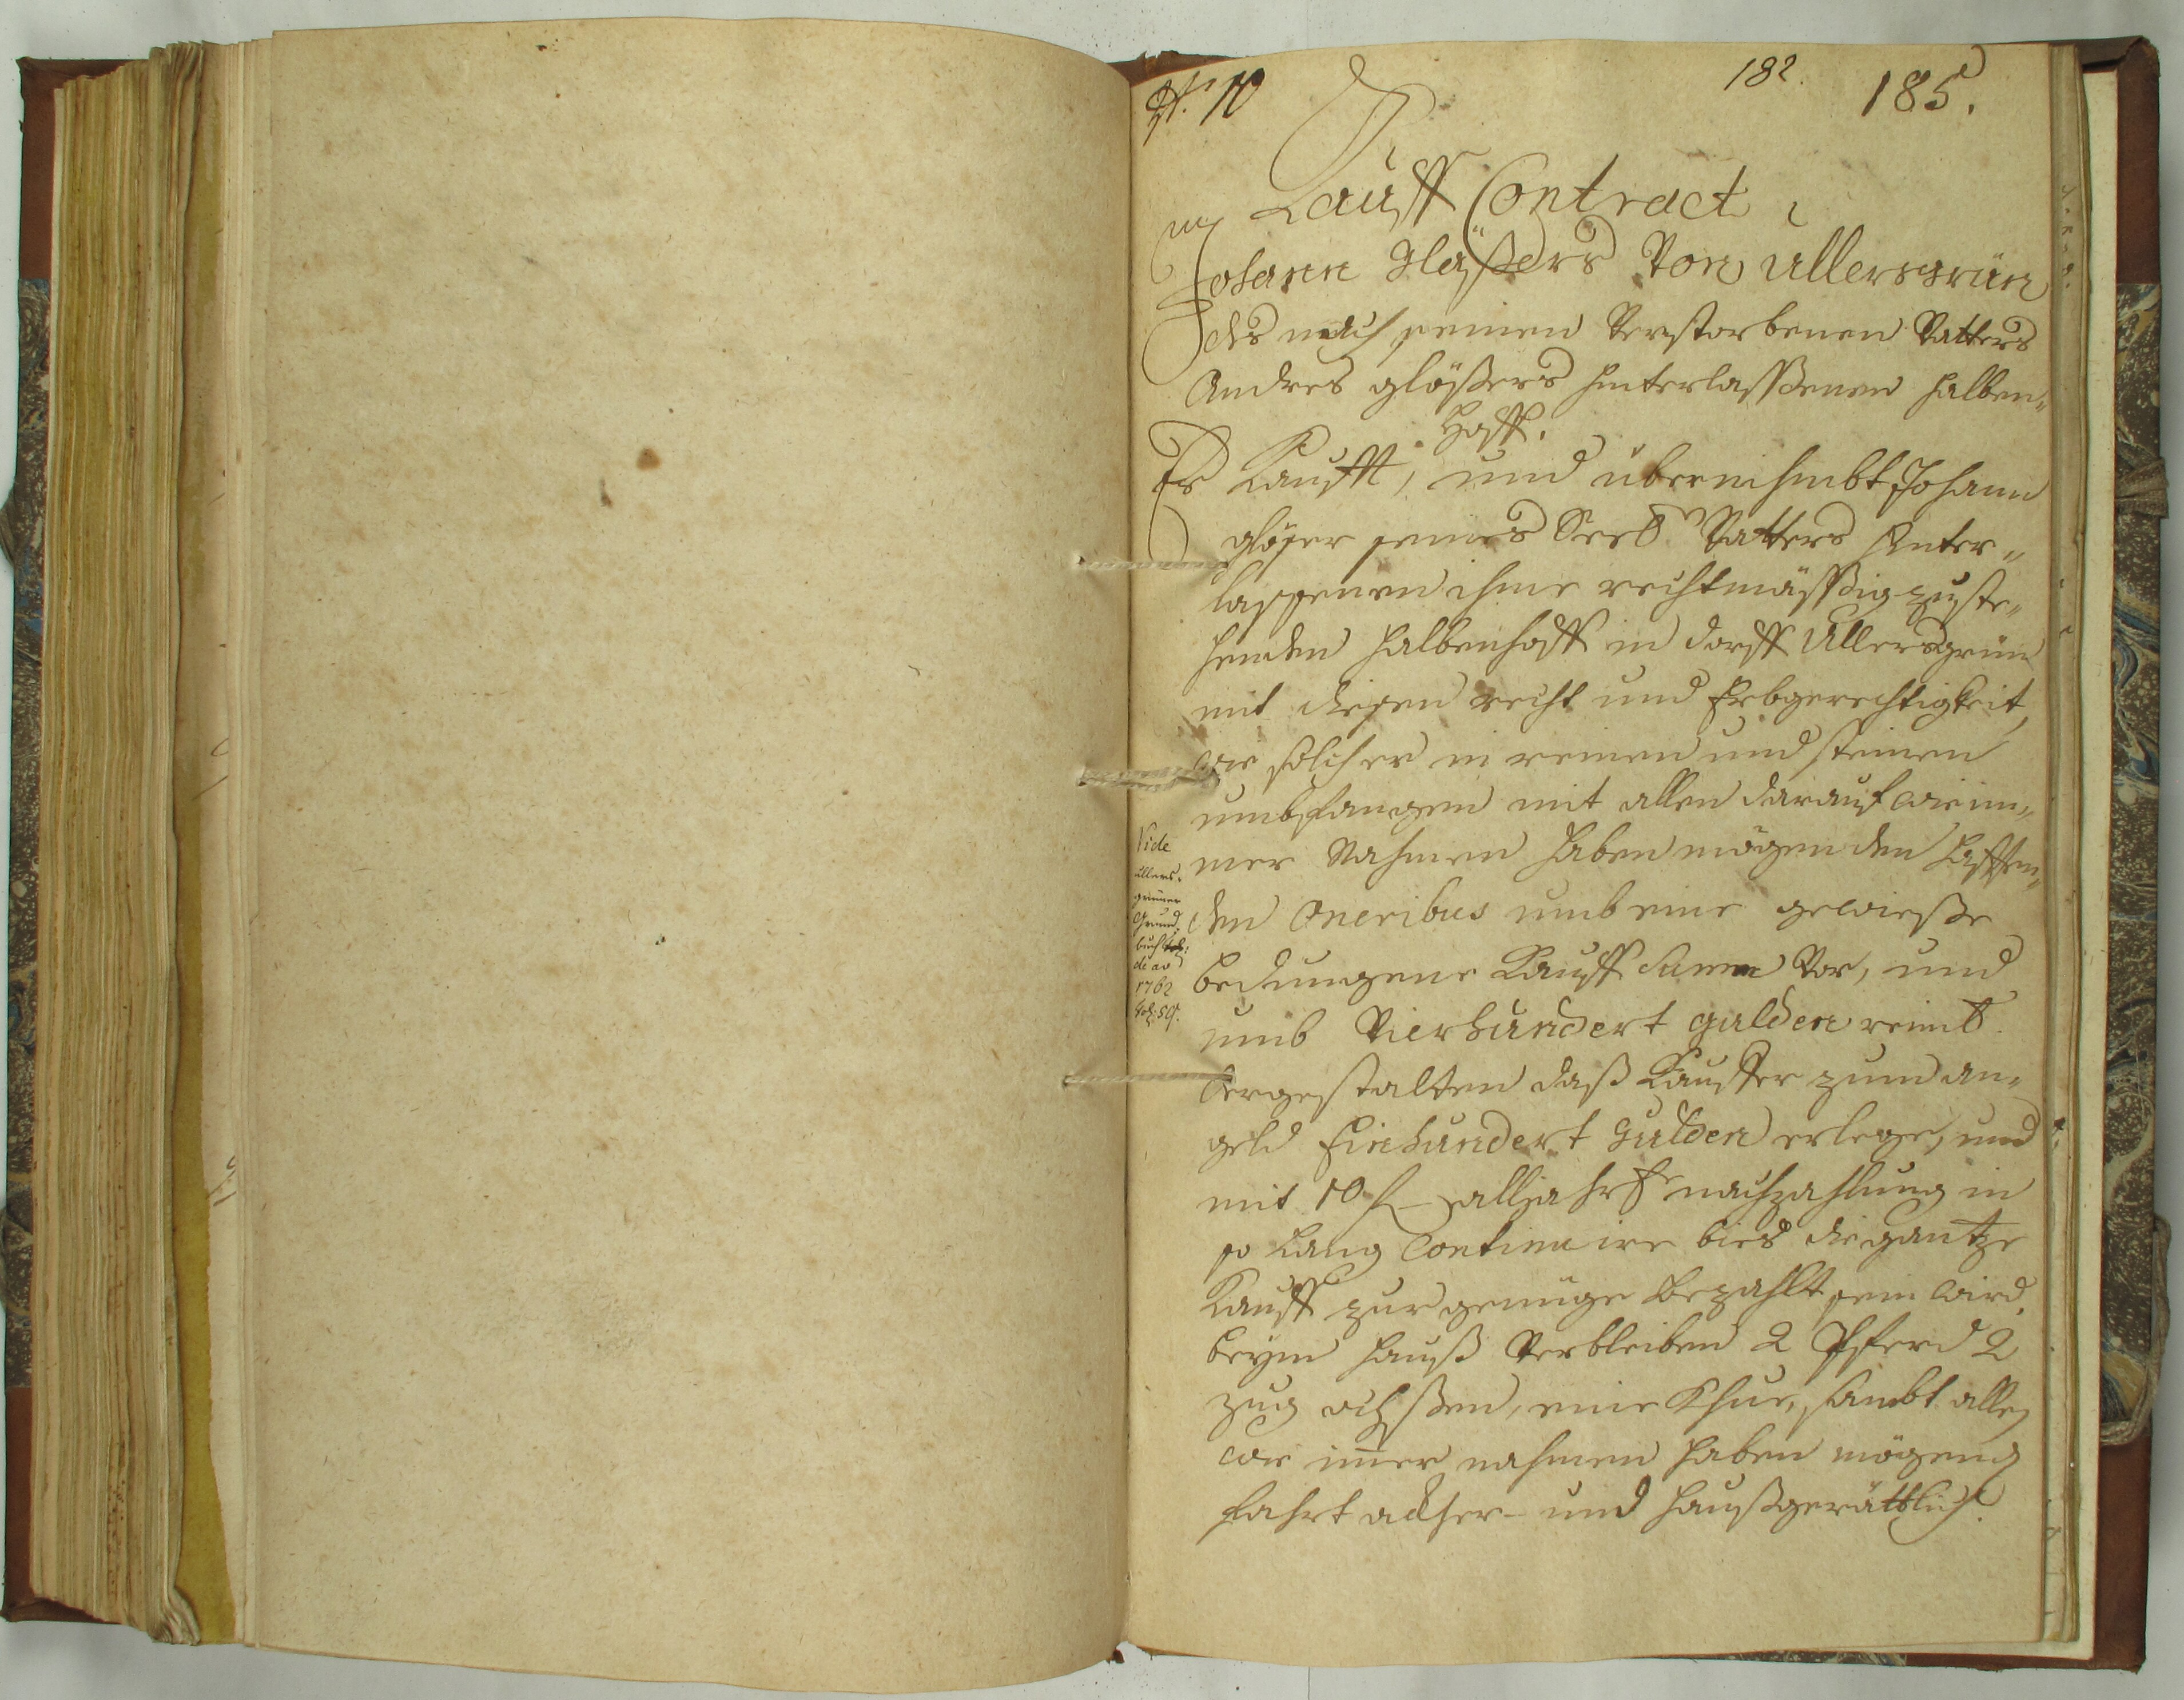 182. 185.
Kauff Contract
Johann Gläßers Von Ullersgrün
des nach seinen Verstorbenen Vatters
Andres gläßers hinterlaßßenen halben„
Hoff.
Es Kaufft, und übernihmbt Johann
gläser seines Seel: Vatters hinter„
lassenen ihme rechtmäßßig zuste„
henden halbenhoff in dorff Ullersgrün
mit diesen recht und Erbgerechtigkeit
wie solcher in reinen und steinen
umbfangen mit allen darauf wie im„
mer Nahmen haben mögenden hafften„
den Oneribus umb eine gewieße
bedungene Kauff Summ Vor, und
umb Vierhundert gulden reinl.
dergestalten daß Kauffer zum an„
geld Einhundert Gulden erlege, und
mit 10 f alljahrl. nachzahlung in
so lang Continuire bies die gantze
Kauff zur genüge bezahlt sein wird.
beym hauß Verbleiben 2 Pferd 2
zug ochßen, eine Khue, sambt allen
wie immer nahmen haben mögend
fahrt ackher- und haußgeräthlich.
Vide
ullers-
grüner
Grund
buch
de ao
1762
fol: 59.